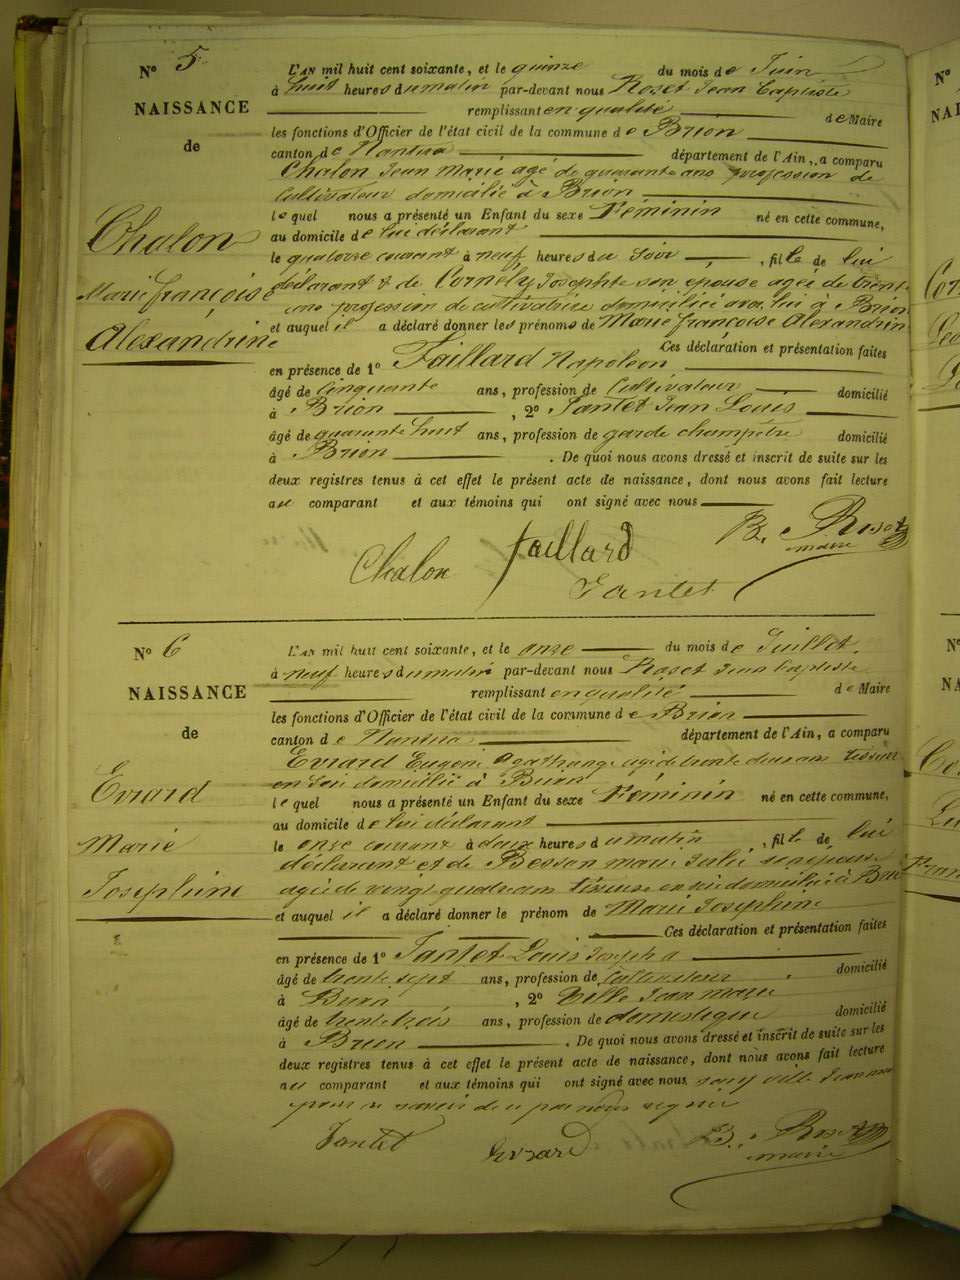 N° 5
NAISSANCE
de
Chalon
Marie françoise
Alexandrine
L'AN mil huit cent soixante, et le quinze du mois de Juin
à huit heures du matin par-devant nous Roset Jean Baptiste
remplissant en qualité de Maire
les fonctions d'Officier de l'état civil de la commune de Brion
canton de Nantua département de l'Ain, a comparu
Chalon Jean Marie agé de quarante ans profession de
Cultivateur domicilié à Brion
lequel nous a présenté un Enfant du sexe Féminin né en cette commune,
au domicile de lui déclarant
le quatorze courant à neuf heures du soir, fille de lui
déclarant & de Cornély Josephte son épouse agée de trente
ans profession de cultivatrice domiciliée avec lui à Brion
et auquel il a déclaré donner les prénoms de Marie françoise Alexandrine
Ces déclaration et présentation faites
en présence de 1° Faillard Napoleon
âgé de cinquante ans, profession de Cultivateur domicilié
à Brion, 2° Tantet Jean Louis
âgé de quarante huit ans, profession de garde champêtre domicilié
à Brion. De quoi nous avons dressé et inscrit de suite sur les
deux registres tenus à cet effet le présent acte de naissance, dont nous avons fait lecture
au comparant et aux témoins qui ont signé avec nous
B. Roset
maire
Chalon faillard
Tantet
N° 6
NAISSANCE
de
Evrard
Marie
Josephine
L'AN mil huit cent soixante, et le onze du mois de Juillet
à neuf heures du matin par-devant nous Roset Jean baptiste
remplissant en qualité de Maire
les fonctions d'Officier de l'état civil de la commune de Brion
canton de Nantua département de l'Ain, a comparu
Evrard Eugène agathange agé de trente deux ans tisseur
en soie domicilié à Brion
lequel nous a présenté un Enfant du sexe Féminin né en cette commune,
au domicile de lui déclarant
le onze courant à deux heures du matin, fille de lui
déclarant et de Besson marie Julie son épouse
agée de vingt quatre ans tisseuse en soie domiciliée à Brion
et auquel il a déclaré donner le prénom de Marie Josephine
Ces déclaration et présentation faites
en présence de 1° Tantet Louis Joseph
âgé de trente sept ans, profession de Cultivateur domicilié
à Brion, 2° Ville Jean marie
âgé de trente trois ans, profession de domestique domicilié
à Brion. De quoi nous avons dressé et inscrit de suite sur les
deux registres tenus à cet effet le présent acte de naissance, dont nous avons fait lecture
au comparant et aux témoins qui ont signé avec nous sauf ville Jean marie
pour ne savoir de ce par nous requis
Tantet Evrard B. Roset
maire